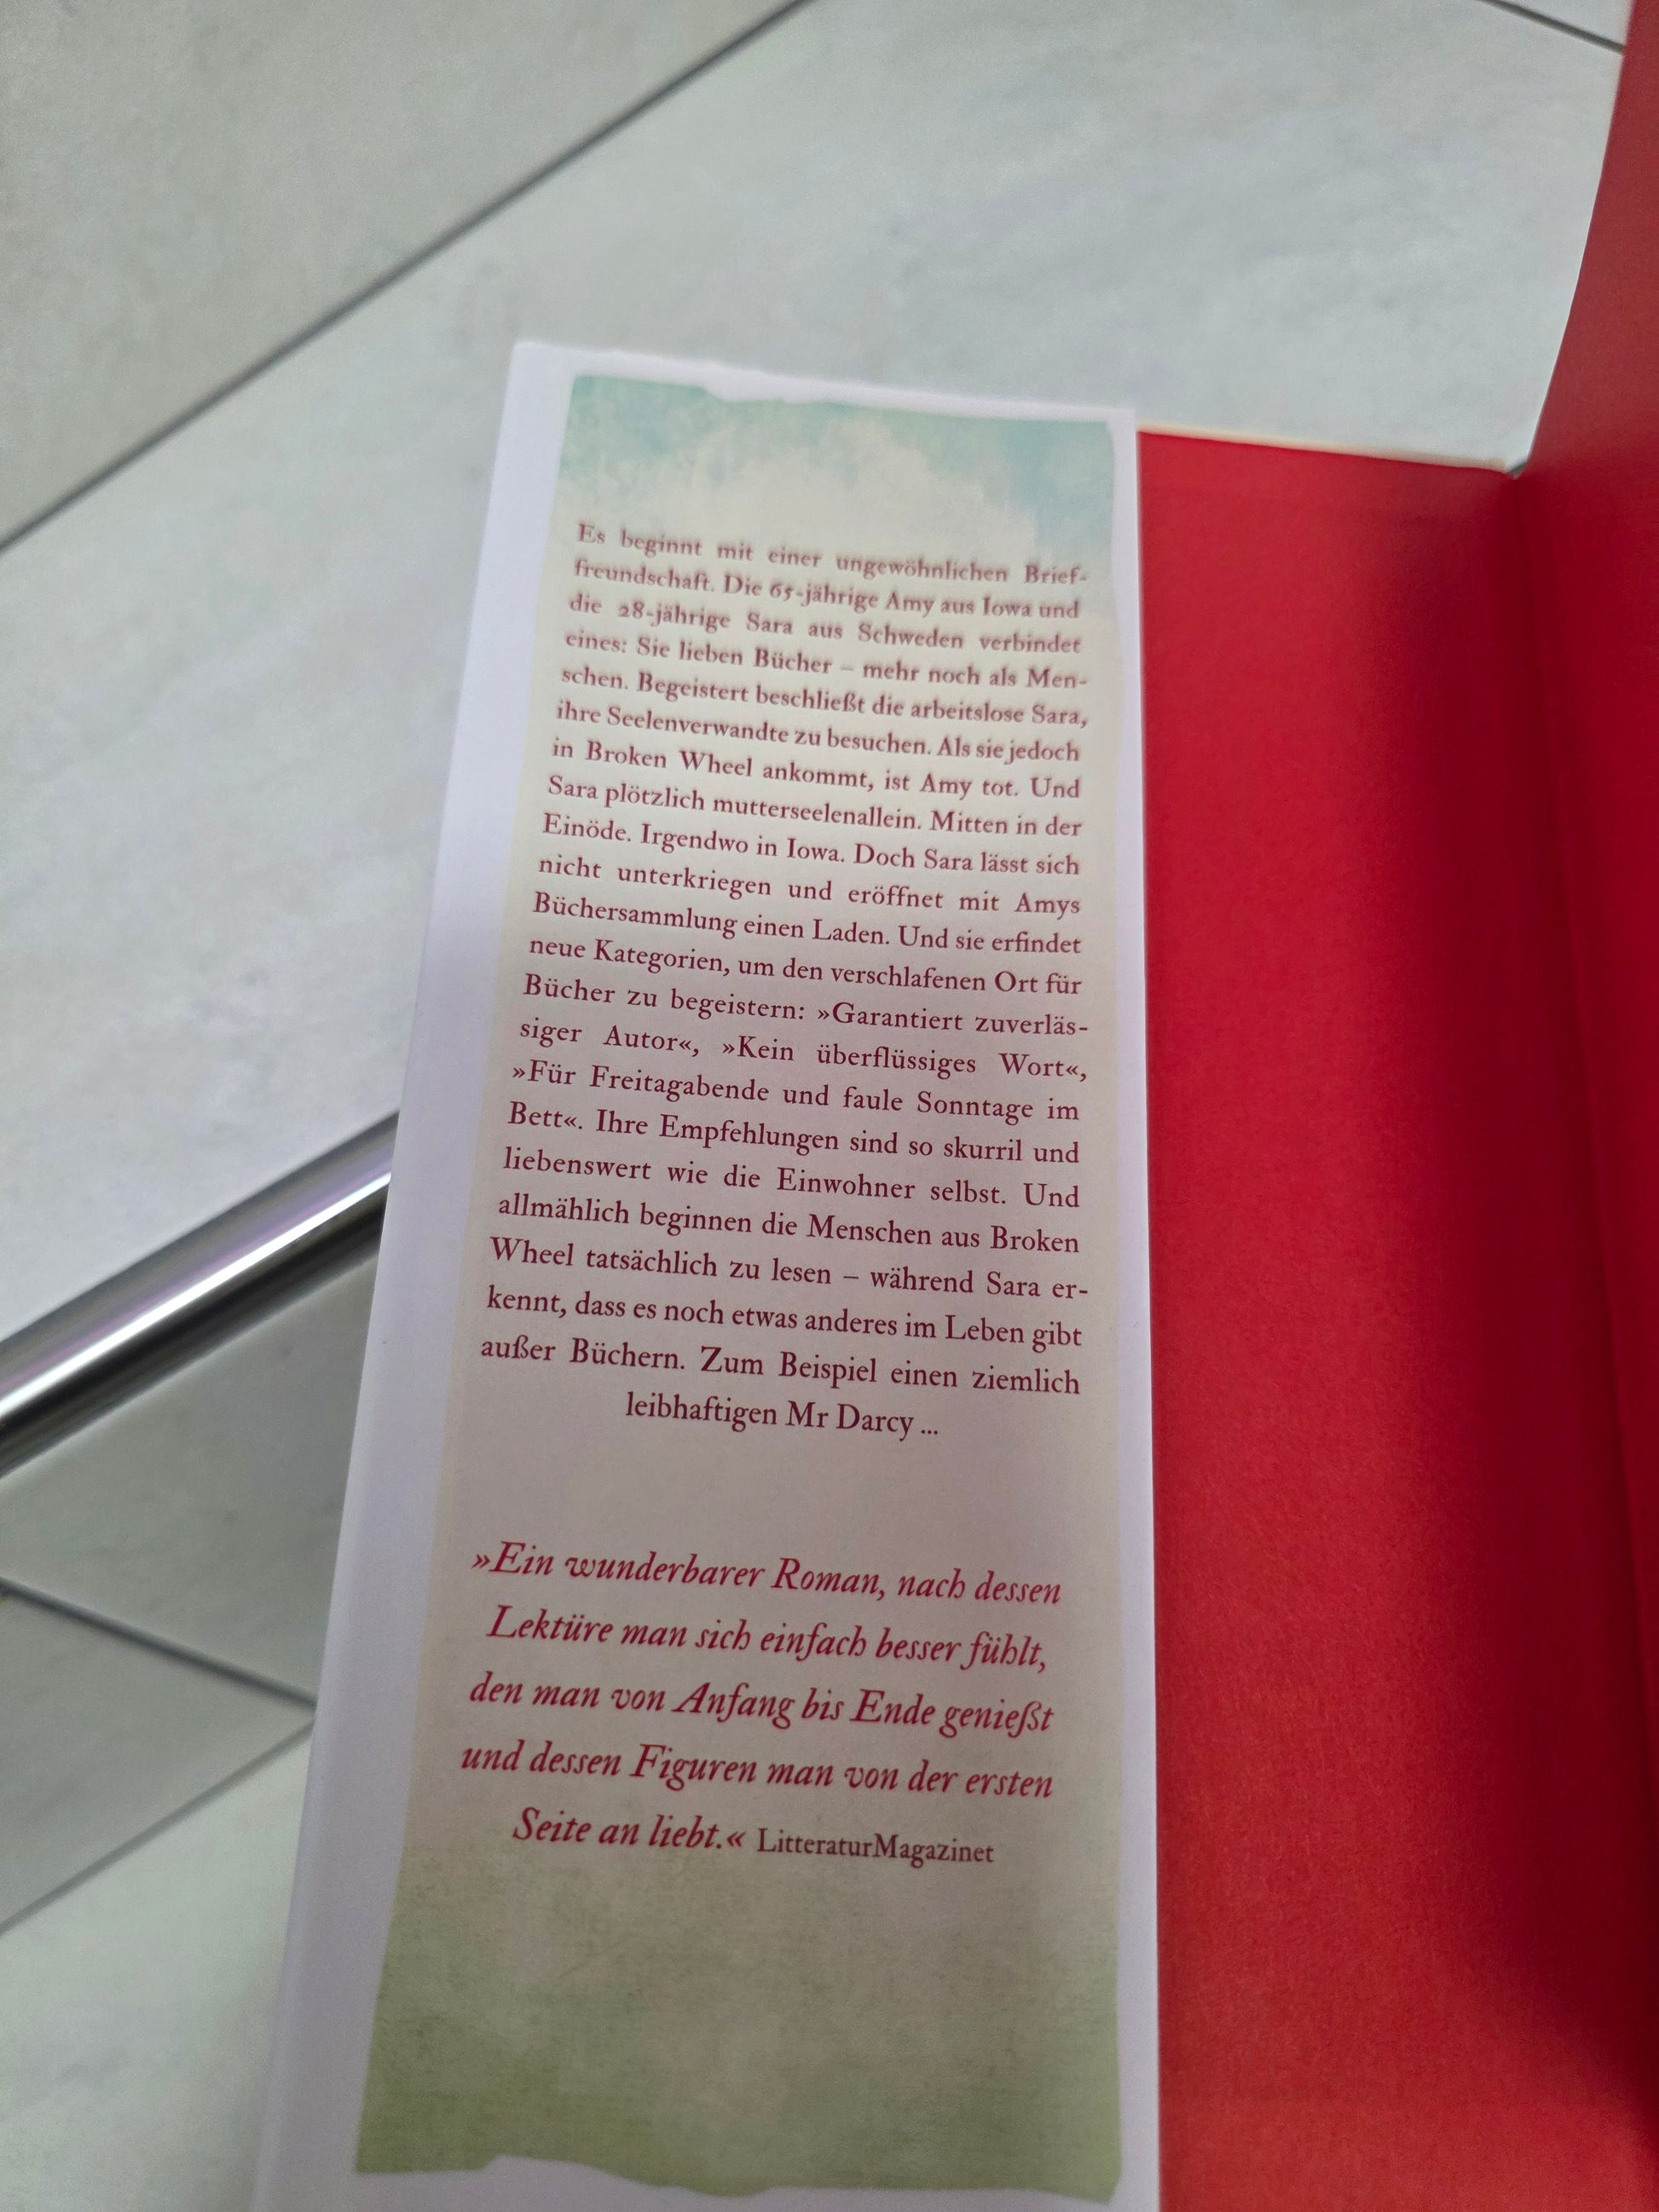 Es beginnt mit einer ungewöhnlichen Brief-
freundschaft. Die 65-jährige Amy aus Iowa und
die 28-jährige Sara aus Schweden verbindet
eines: Sie lieben Bücher – mehr noch als Men-
schen. Begeistert beschließt die arbeitslose Sara,
ihre Seelenverwandte zu besuchen. Als sie jedoch
in Broken Wheel ankommt, ist Amy tot. Und
Sara plötzlich mutterseelenallein. Mitten in der
Einöde. Irgendwo in Iowa. Doch Sara lässt sich
nicht unterkriegen und eröffnet mit Amys
Büchersammlung einen Laden. Und sie erfindet
neue Kategorien, um den verschlafenen Ort für
Bücher zu begeistern: »Garantiert zuverläs-
siger Autor«, »Kein überflüssiges Wort«,
»Für Freitagabende und faule Sonntage im
Bett«. Ihre Empfehlungen sind so skurril und
liebenswert wie die Einwohner selbst. Und
allmählich beginnen die Menschen aus Broken
Wheel tatsächlich zu lesen – während Sara er-
kennt, dass es noch etwas anderes im Leben gibt
außer Büchern. Zum Beispiel einen ziemlich
leibhaftigen Mr Darcy ...
»Ein wunderbarer Roman, nach dessen
Lektüre man sich einfach besser fühlt,
den man von Anfang bis Ende genießt
und dessen Figuren man von der ersten
Seite an liebt.« LitteraturMagazinet